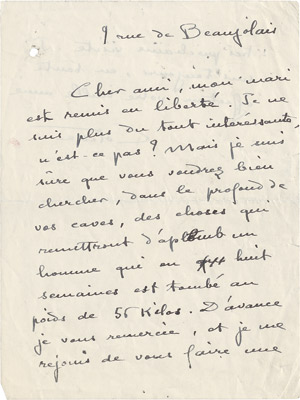 9 rue de Beaujolais
Cher ami, mon mari
est remis en liberté. Je ne
suis plus du tout intéressante,
n'est-ce pas ? Mais je suis
sûre que vous voudrez bien
chercher, dans le profond de
vos caves, des choses qui
remettront d'aplomb un
homme qui en huit
semaines est tombé au
poids de 56 kilos. D'avance
je vous remercie, et je me
rejouis de vous faire une